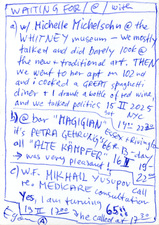 WAITING FOR / @ / with
a) w/ Michelle Michelsohn @ the
WHITNEY museum - we mostly
talked and did barely look @
the new + traditional art. THEN
we went to her apt on 102nd
and i cooked a GREAT spaghetti
dinner + I drank a bottle of red wine
and we talked politics 15 II 2025
NYC
b) @ bar "MAGICIAN" Essex + Rivington
it's PETRA GEHRUNG's birthday
all "ALTE KÄMPFER"
→ was very pleasant 16 II
c) W.F. MIKHAIL Yusupov call
re. MEDICARE consultation
Yes, I am turning 65!!
he called at 17:30